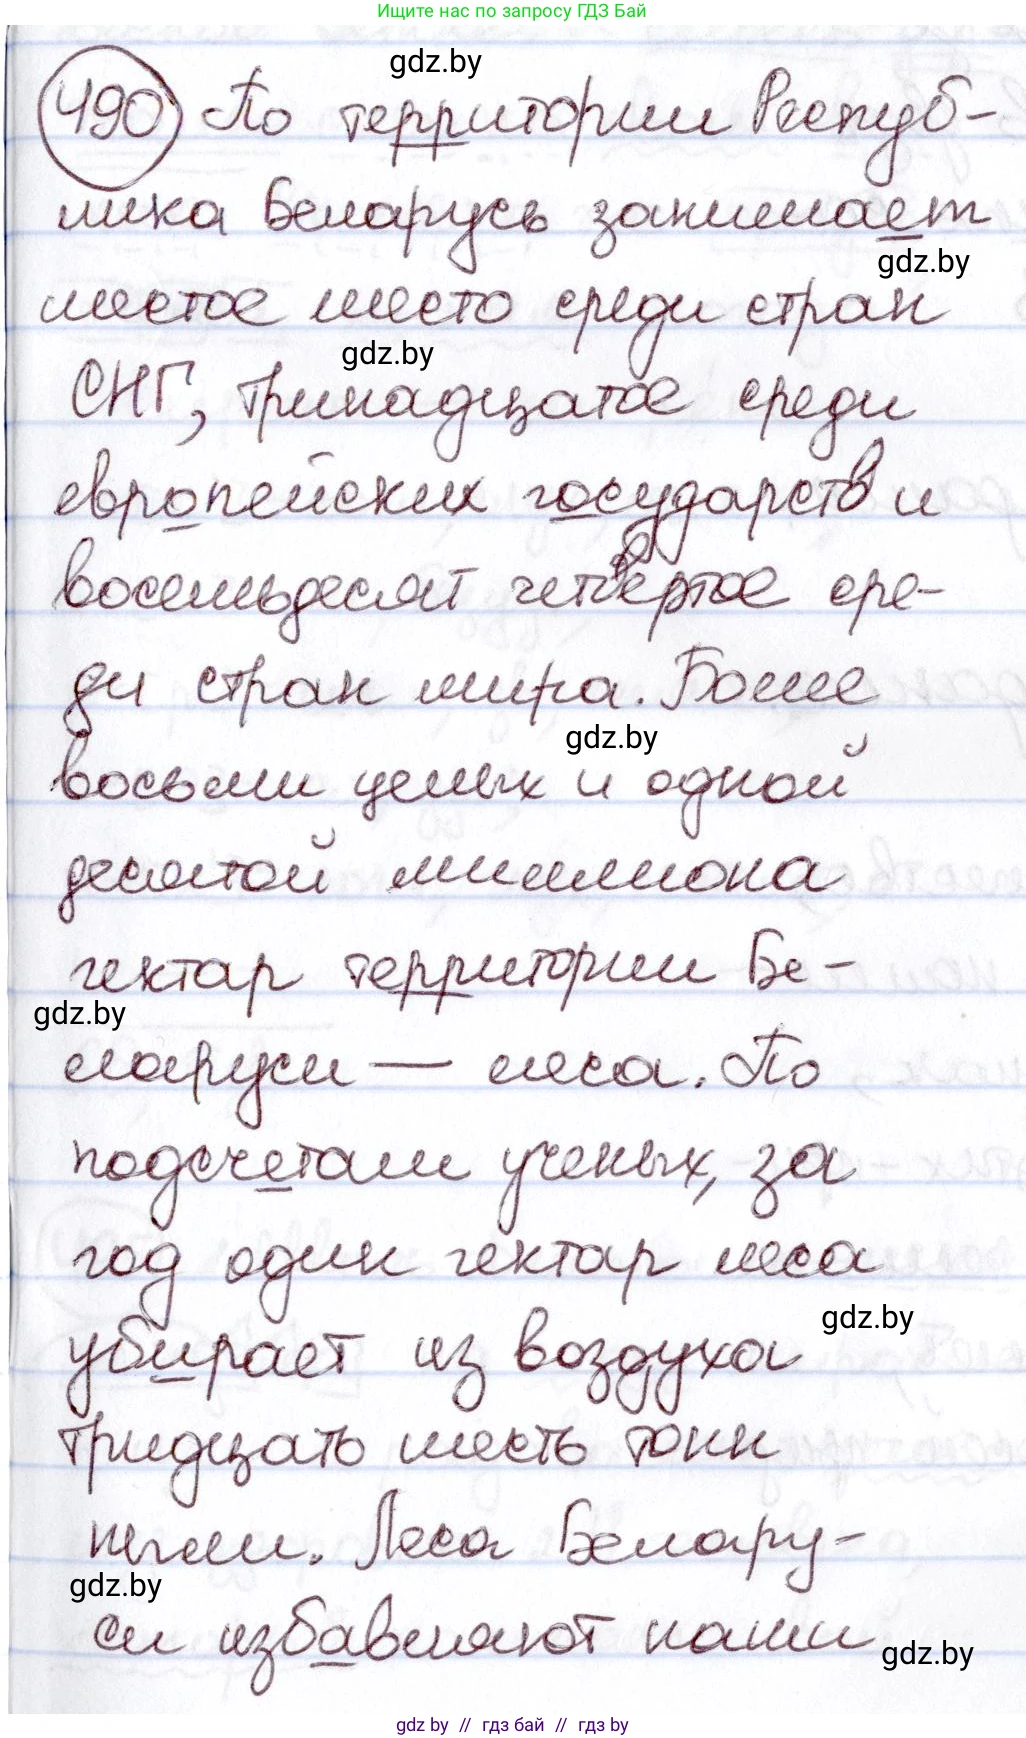 Ищите нас по запросу ГДЗ Бай
gdz.by
490 По территории Респуб-
лика Беларусь занимает
gdz.by
шестое место среди стран
gdz.by
СНГ, тринадцатое среди
европейских государств и
восемьдесят четвёртое сре-
ди стран мира. Более
gdz.by
восьми целых и одной
десятой миллиона
гектар территории Бе-
gdz.by
ларуси — леса. По
подсчетам ученых, за
год один гектар леса
gdz.by
убирает из воздуха
тридцать шесть тонн
пыли. Леса Белару-
gdz.by
си избавляют наши
gdz.by
gdz by // гдз бай // gdz by